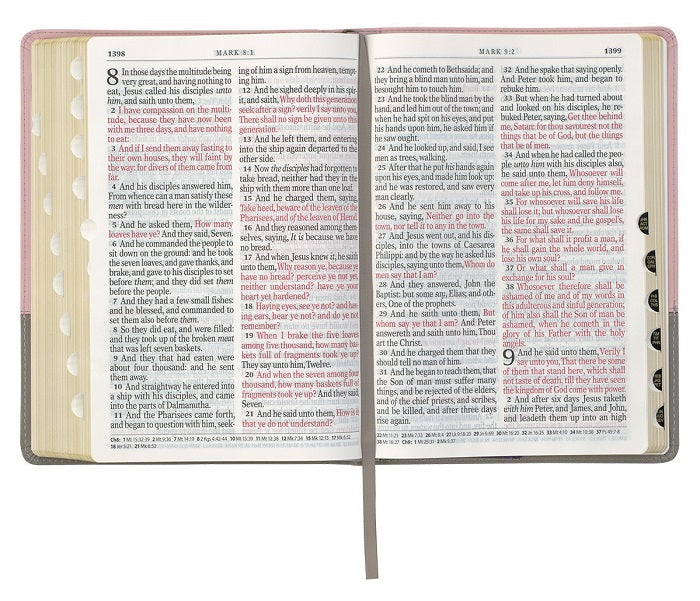 1398
MARK 8:1
8 In those days the multitude being
very great, and having nothing to
eat, Jesus called his disciples unto
him, and saith unto them,
2 I have compassion on the multi-
tude, because they have now been
with me three days, and have nothing
to eat:
3 And if I send them away fasting to
their own houses, they will faint by
the way: for divers of them came from
far.
4 And his disciples answered him,
From whence can a man satisfy these
men with bread here in the wilder-
ness?
5 And he asked them, How many
loaves have ye? And they said, Seven.
6 And he commanded the people to
sit down on the ground: and he took
the seven loaves, and gave thanks, and
brake, and gave to his disciples to set
before them; and they did set them
before the people.
7 And they had a few small fishes:
and he blessed, and commanded to
set them also before them.
8 So they did eat, and were filled:
and they took up of the broken meat
that was left seven baskets.
9 And they that had eaten were
about four thousand: and he sent
them away.
10 And straightway he entered into
a ship with his disciples, and came
into the parts of Dalmanutha.
11 And the Pharisees came forth,
and began to question with him, seek-
ing of him a sign from heaven, tempt-
ing him.
12 And he sighed deeply in his spir-
it, and saith, Why doth this generation
seek after a sign? verily I say unto you,
There shall no sign be given unto this
generation.
13 And he left them, and entering
into the ship again departed to the
other side.
14 Now the disciples had forgotten to
take bread, neither had they in the
ship with them more than one loaf.
15 And he charged them, saying,
Take heed, beware of the leaven of the
Pharisees, and of the leaven of Herod.
16 And they reasoned among them-
selves, saying, It is because we have
no bread.
17 And when Jesus knew it, he saith
unto them, Why reason ye, because ye
have no bread? perceive ye not yet,
neither understand? have ye your
heart yet hardened?
18 Having eyes, see ye not? and hav-
ing ears, hear ye not? and do ye not
remember?
19 When I brake the five loaves
among five thousand, how many bas-
kets full of fragments took ye up?
They say unto him, Twelve.
20 And when the seven among four
thousand, how many baskets full of
fragments took ye up? And they said,
Seven.
21 And he said unto them, How is it
that ye do not understand?
MARK 9:2
1399
22 And he cometh to Bethsaida; and
they bring a blind man unto him, and
besought him to touch him.
23 And he took the blind man by the
hand, and led him out of the town; and
when he had spit on his eyes, and put
his hands upon him, he asked him if
he saw ought.
24 And he looked up, and said, I see
men as trees, walking.
25 After that he put his hands again
upon his eyes, and made him look up:
and he was restored, and saw every
man clearly.
26 And he sent him away to his
house, saying, Neither go into the
town, nor tell it to any in the town.
27 And Jesus went out, and his dis-
ciples, into the towns of Caesarea
Philippi: and by the way he asked his
disciples, saying unto them, Whom do
men say that I am?
28 And they answered, John the
Baptist: but some say, Elias; and oth-
ers, One of the prophets.
29 And he saith unto them, But
whom say ye that I am? And Peter
answereth and saith unto him, Thou
art the Christ.
30 And he charged them that they
should tell no man of him.
31 And he began to teach them, that
the Son of man must suffer many
things, and be rejected of the elders,
and of the chief priests, and scribes,
and be killed, and after three days
rise again.
32 And he spake that saying openly.
And Peter took him, and began to
rebuke him.
33 But when he had turned about
and looked on his disciples, he re-
buked Peter, saying, Get thee behind
me, Satan: for thou savourest not the
things that be of God, but the things
that be of men.
34 And when he had called the peo-
ple unto him with his disciples also,
he said unto them, Whosoever will
come after me, let him deny himself,
and take up his cross, and follow me.
35 For whosoever will save his life
shall lose it; but whosoever shall lose
his life for my sake and the gospel's,
the same shall save it.
36 For what shall it profit a man, if
he shall gain the whole world, and
lose his own soul?
37 Or what shall a man give in
exchange for his soul?
38 Whosoever therefore shall be
ashamed of me and of my words in
this adulterous and sinful generation;
of him also shall the Son of man be
ashamed, when he cometh in the
glory of his Father with the holy
angels.
9 And he said unto them, Verily I
say unto you, That there be some
of them that stand here, which shall
not taste of death, till they have seen
the kingdom of God come with power.
2 And after six days Jesus taketh
with him Peter, and James, and John,
and leadeth them up into an high